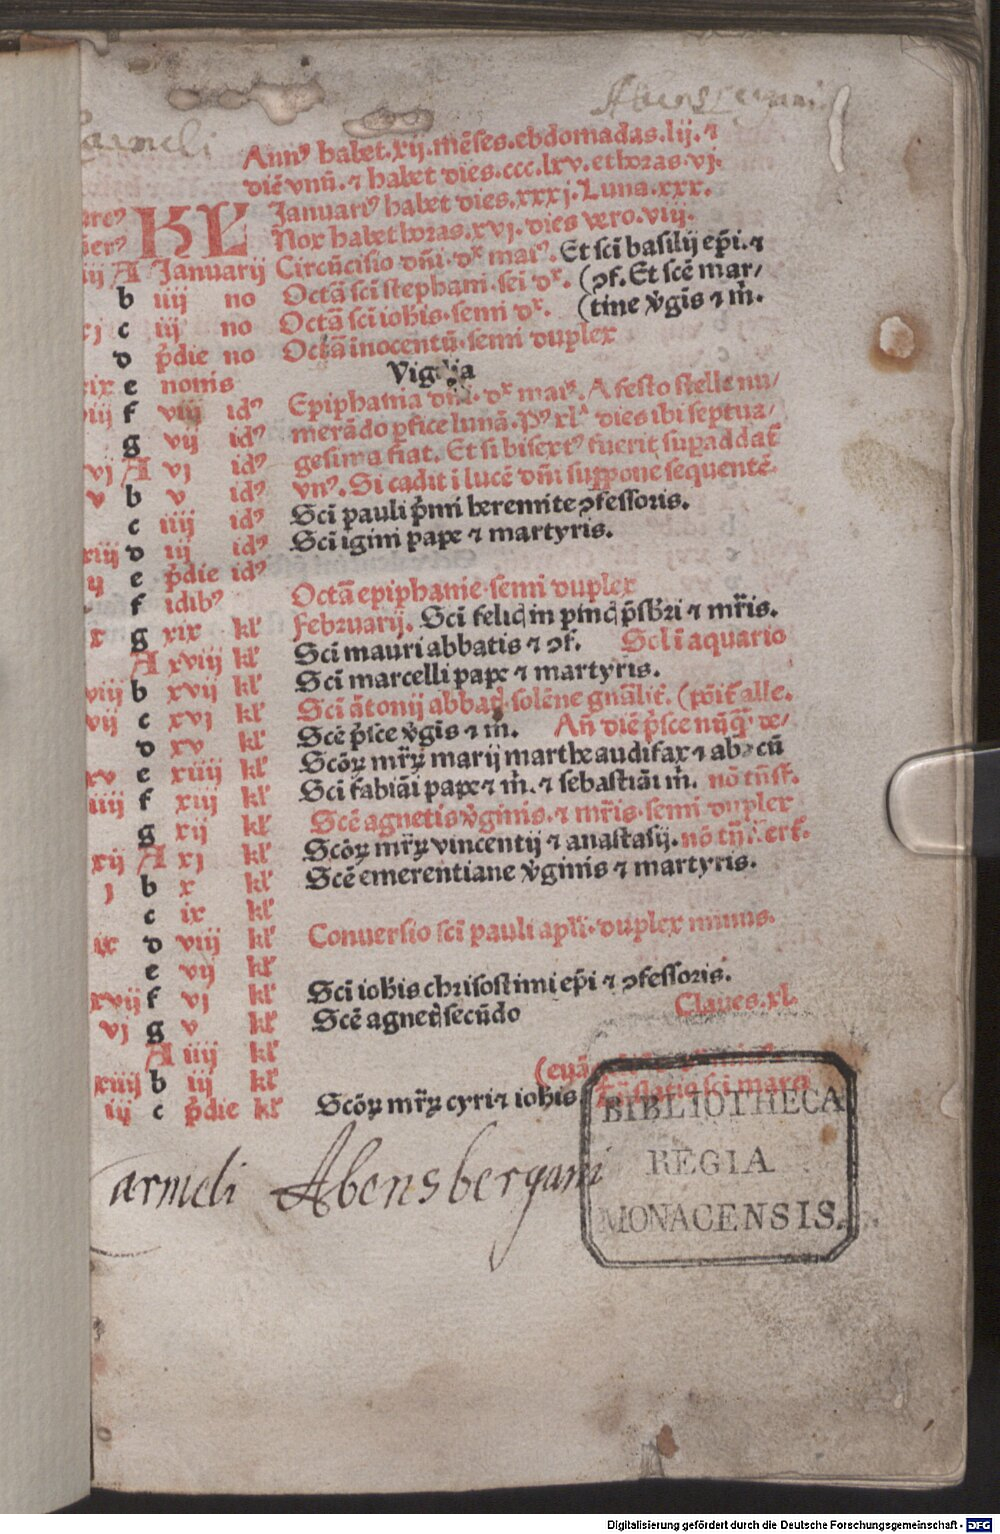 Abensbergani
armeli
Annꝰ habet.xij.mēses.ebdomadas.lij.⁊
diē vnū.⁊ habet dies.ccc.lxv.et horas.vj.
Januariꝰ habet dies.xxxj.Luna.xxx.
KL Nox habet horas.xvj.dies vero.viij.
A Januarij Circūcisio dñi.dx maiꝰ. Et sci basilij epi.⁊
b iiij no Octā sci stephani.sei dx. (ɔf. Et sce mar/
c iij no Octā sci iohis.semi dx. (tine v̇gis ⁊ m̄.
d p̄die no Octā inocentū.semi duplex
e nonis Vigilia
f viij idꝰ Epiphania dñi.dx maiꝰ. A festo stelle nu/
g vij idꝰ merādo ꝑfice lunā.Pꝰ xl dies ibi septua/
vj A vj idꝰ gesima fiat. Et si bisextꝰ fuerit suꝑaddat
v b v idꝰ vnꝰ. Si cadit i lucē dñi suppone sequentē.
c iiij idꝰ Sci pauli p̄mi heremite ɔfessoris.
xiij d iij idꝰ Sci igini pape ⁊ martyris.
ij e p̄die idꝰ
f idibꝰ Octā epiphanie.semi duplex
x g xix kl Februarij. Sci felic in pinc p̄sbri ⁊ mr̄is.
A xviij kl Sci mauri abbatis ⁊ ɔf. Sol i aquario
viij b xvij kl Sci marcelli pape ⁊ martyris.
vij c xvj kl Sci ātonij abbat.solēne gnālit. (poit alle.
d xv kl Sce p̄sce v̇gis ⁊ m̄. Añ diē p̄sce nūq de/
xv e xiiij kl Scoꝝ mr̄ꝝ marij marthe audifax ⁊ abacū
iiij f xiij kl Sci fabiāi pape ⁊ m̄. ⁊ sebastiāi m̄. nō tñ sr.
g xij kl Sce agnetis v̇ginis.⁊ mr̄is.semi duplex
xij A xj kl Scoꝝ mr̄ꝝ vincentij ⁊ anastasij.
j b x kl Sce emerentiane v̇ginis ⁊ martyris.
c ix kl
ix d viij kl Conuersio sci pauli apli.duplex minus.
e vij kl
xvij f vj kl Sci iohis chrisostimi epi ⁊ ɔfessoris.
vj g v kl Sce agnet secūdo Claues.xl.
A iiij kl
xiiij b iij kl
iij c p̄die kl Scoꝝ mr̄ꝝ cyri ⁊ iohis
armeli Abensbergani
BIBLIOTHECA
REGIA
MONACENSIS.
Digitalisierung gefördert durch die Deutsche Forschungsgemeinschaft - DFG